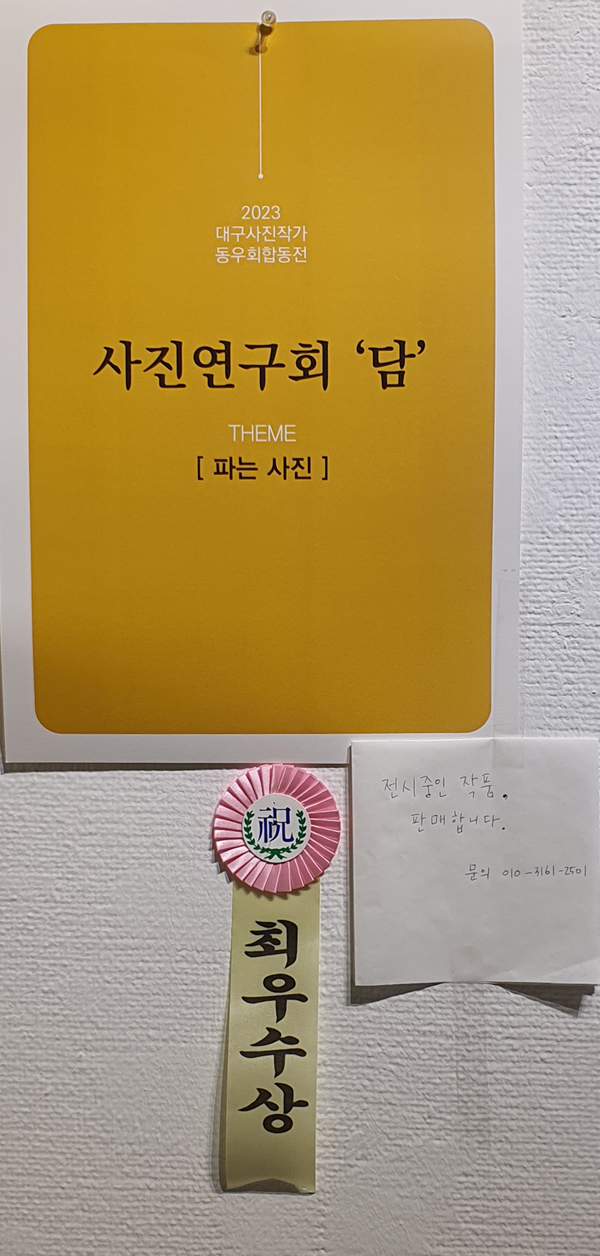 2023
대구사진작가
동우회합동전
사진연구회 ‘담’
THEME
[ 파는 사진 ]
전시중인 작품.
판매합니다.
문의 010-3161-2501
祝
최우수상